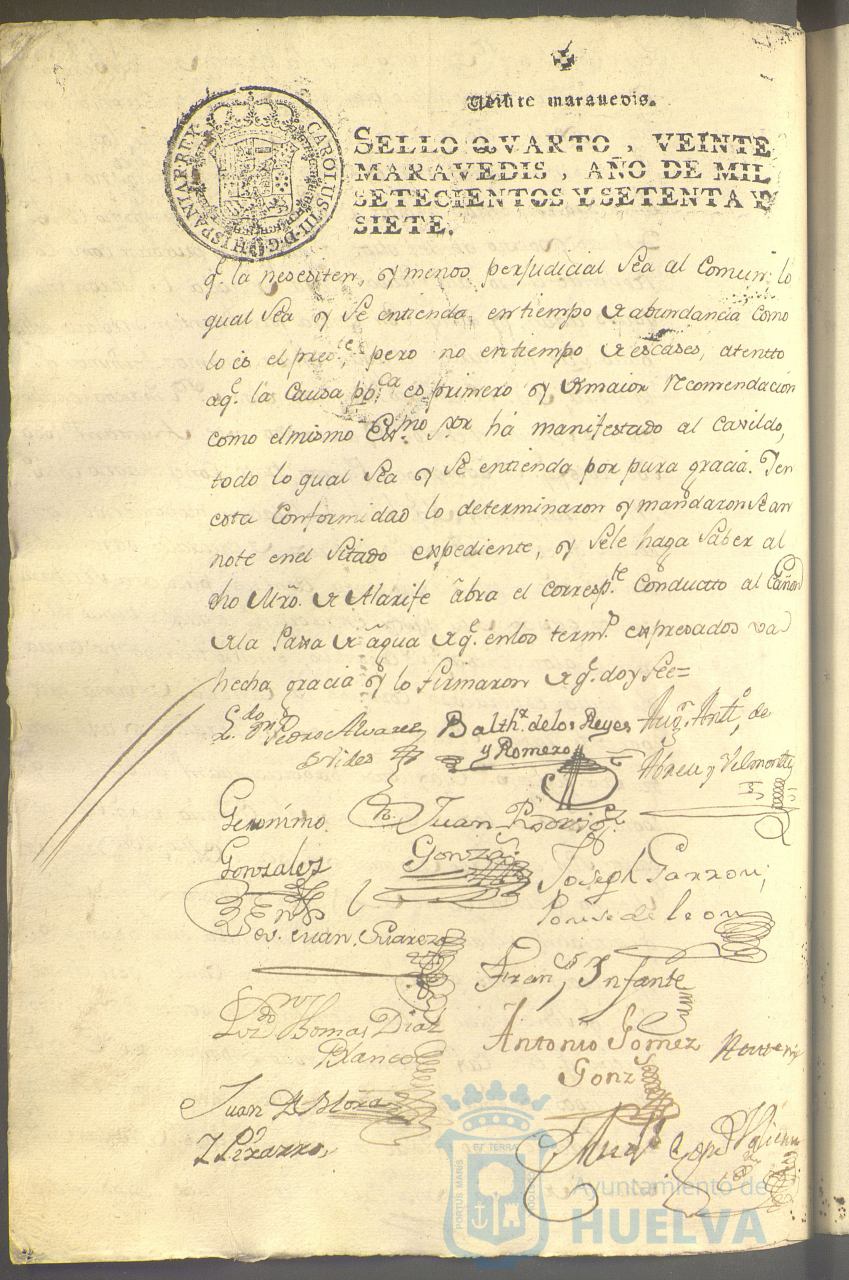 Veinte maravedis.
SELLO QVARTO, VEINTE
MARAVEDIS, AÑO DE MIL
SETECIENTOS Y SETENTA Y
SIETE.
CAROLUS·III·D·G·HISPANIAR·REX·
q.e la nesesiten, y menos perjudicial sea al Comun; lo
qual sea y se entienda, en tiempo de abundancia como
lo es el pres.te, pero no en tiempo de escases, atentto
aq.e la Causa pp.ca es primero y de maior recomendación
como el mismo Ex.mo s.or há manifestado al Cavildo,
todo lo qual sea y se entienda por pura gracia. Y en
esta Conformidad lo determinaron y mandaron se an
note en el Sitado expediente, y sele haga saber al
dho Mro. de Alarife ábra el corresp.te Conductto al Cañon
de la Paxa de água de q.e en los term.s expresados vá
hecha gracia y lo firmaron de q.e doy feé=
L.do Pedro Alvarez
Balth.r de los Reyes
y Romero
Aug.n Ant.o de
Abreu y Velmonte
Geronimo
Gonzales
Juan Rodrig.z
Gonzs.
Joseph Garzon
Ponse de leon
Juan Suarez
Fran.co Infante
Liz.do Thomas Diaz
Blanco
Antonio Gomez
Gonz
Juan de Mora
Y Pizarro
PORTUS MARIS ET TERRÆ CUSTODIA
Ayuntamiento de
HUELVA